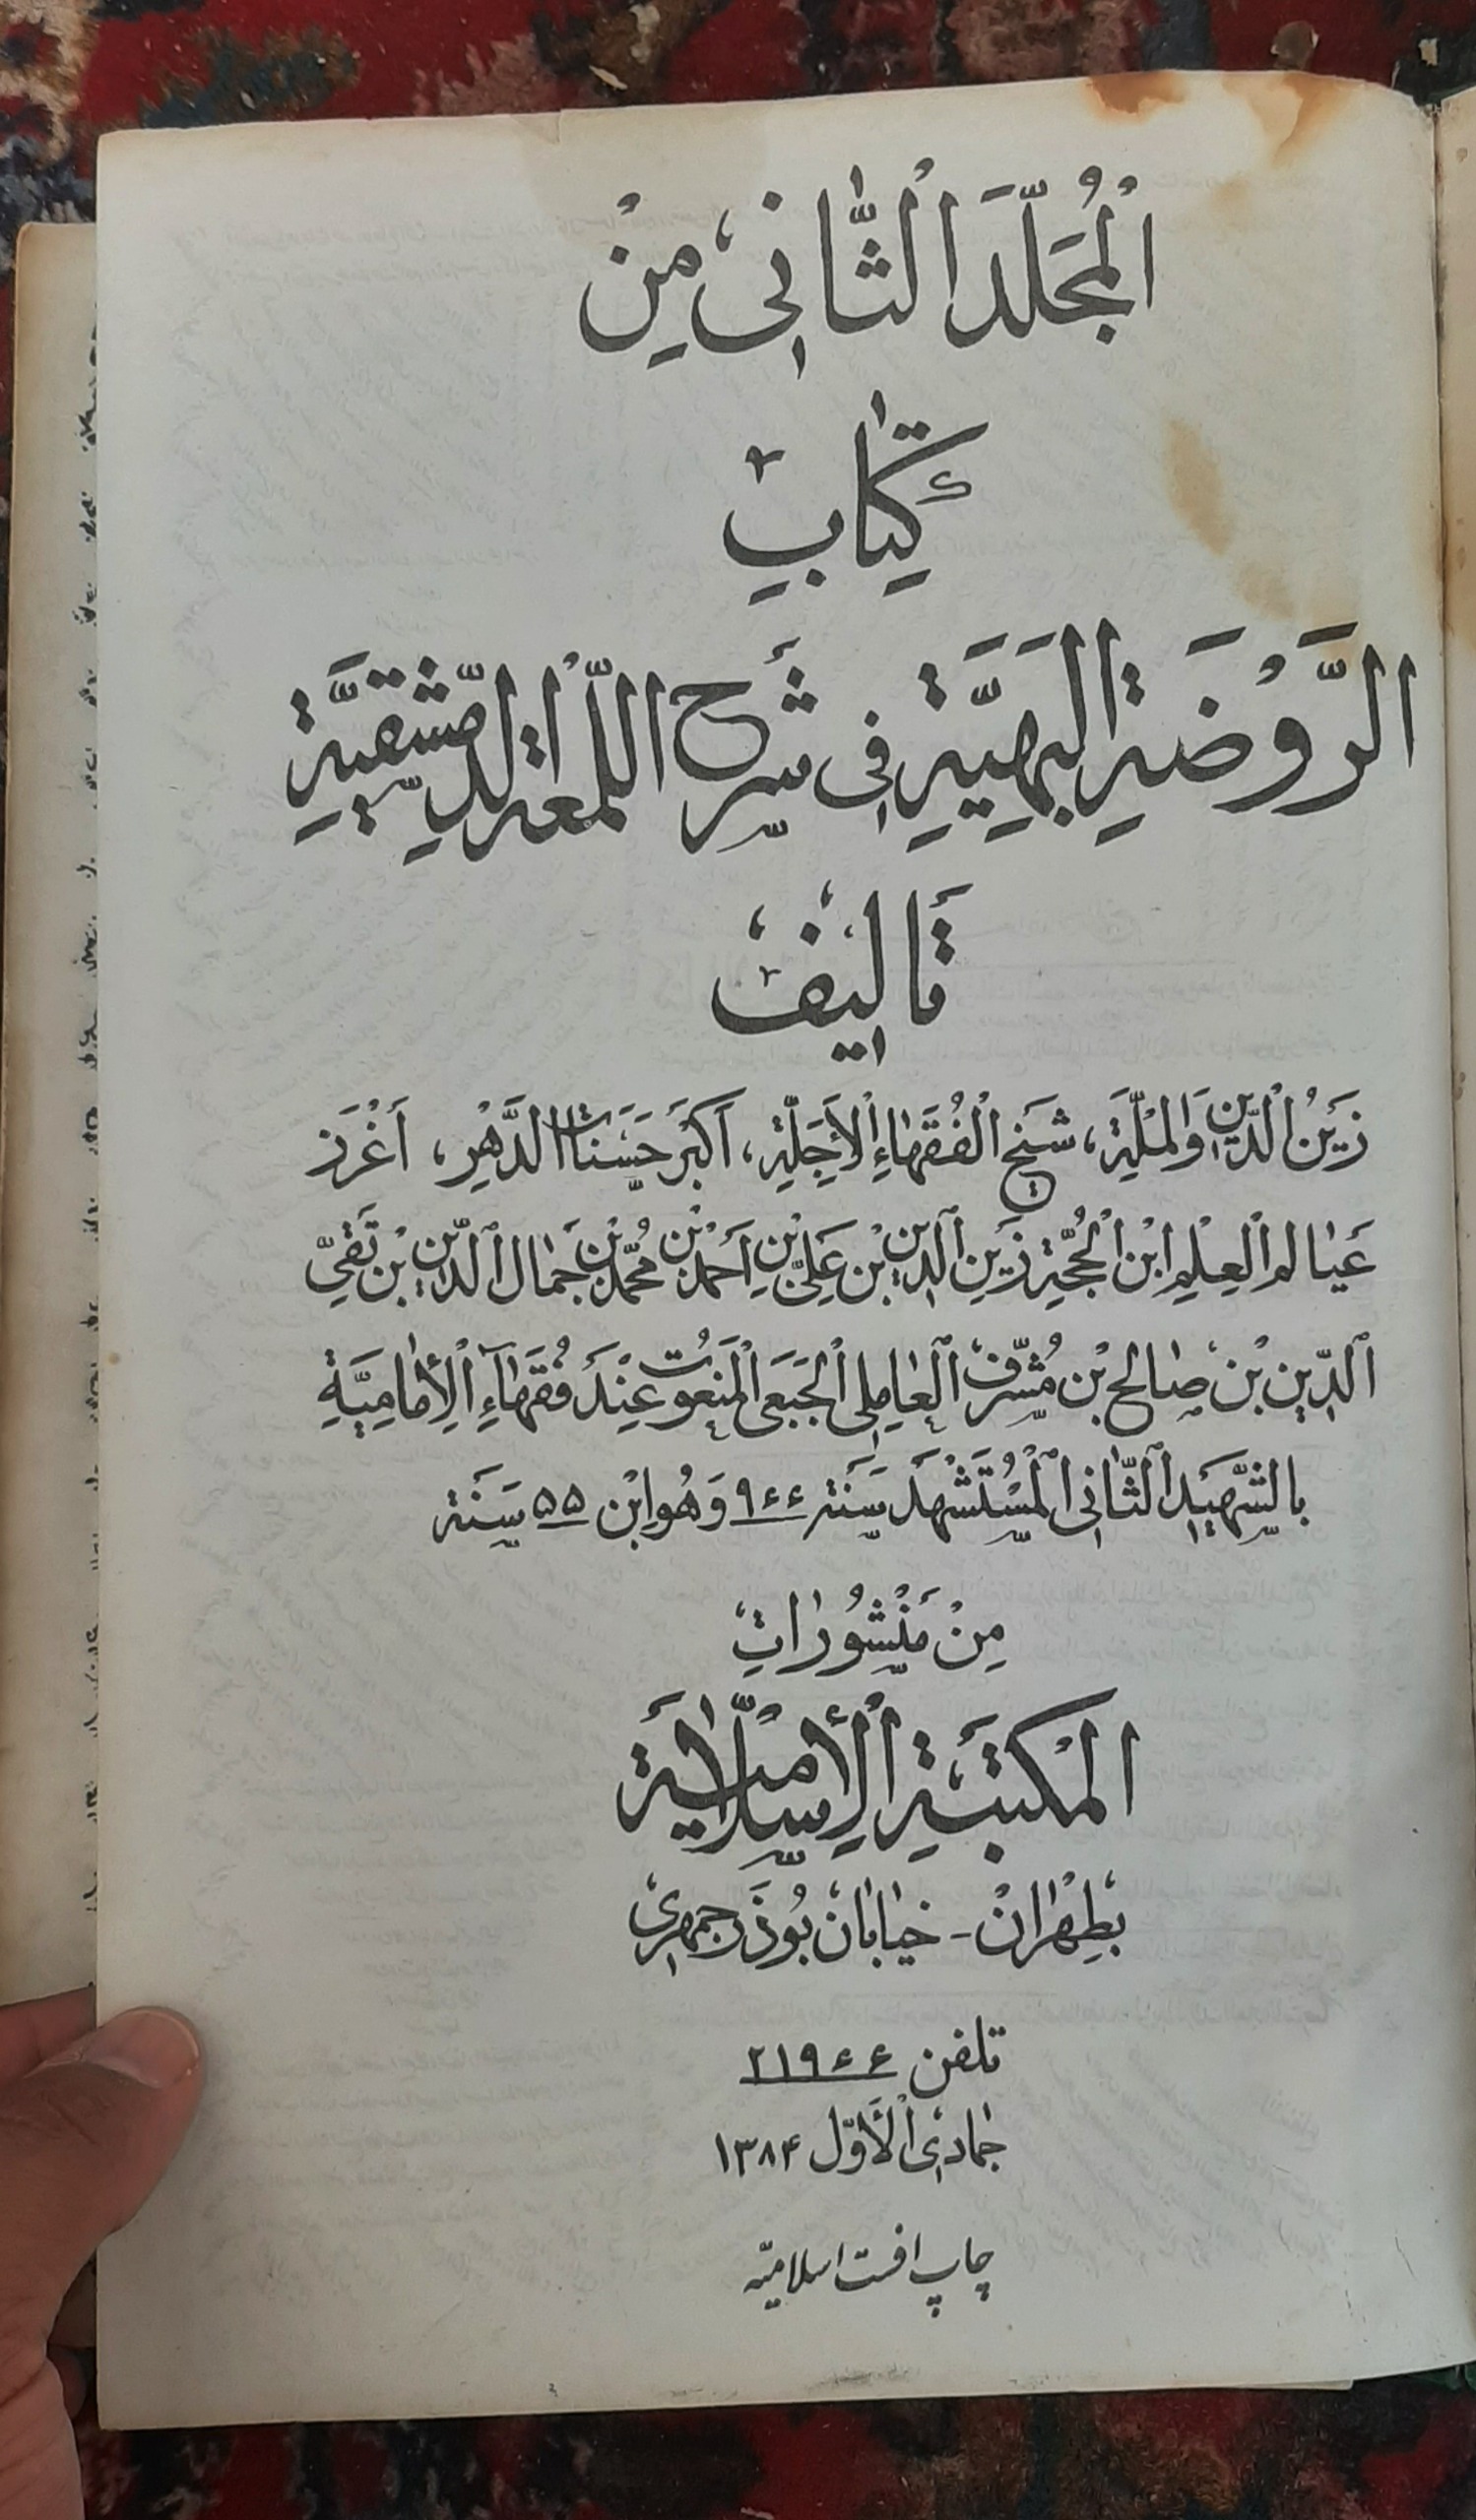 اَلْمُجَلَّدَ الثّٰانِی مِنْ
کِتٰابِ
الرَّوْضَةِ الْبَهِيَّةِ فِی شَرْحِ اللُّمْعَةِ الدِّمَشْقِيَّةِ
تَاليفُ
زَيْنُ الدّينِ وَالْمِلَّةِ، شَيْخِ الْفُقَهٰاءِ الْأَجِلَّةِ، اَكْبَرَ حَسَنٰاتِ الدَّهْرِ، اَغْزَرَ
عَيٰالِمِ الْعِلْمِ ابْنِ الْحُجَّةِ زَيْنِ الدّينِ بْنِ عَلِیِّ بْنِ اَحْمَدَ بْنِ مُحَمَّدِ بْنِ جَمٰالِ الدّينِ بْنِ تَقِیِّ
الدّينِ بْنِ صٰالِحِ بْنِ مُشَرَّفِ الْعٰامِلِی الْجُبَعِی الْمَنْعُوتُ عِنْدَ فُقَهٰاءِ الْاِمٰامِيَّةِ
بِالشَّهيدِ الثّٰانِی الْمُسْتَشْهَدَ سَنَة ۹٤٤ وَهُوَ ابْن ۵۵ سَنَة
مِنْ مَنْشُورٰاتِ
الْمَكْتَبَةِ الْاِسْلٰامِيَّةِ
بِطِهْرٰانْ - خيٰابٰان بُوذَرْجُمهری
تلفن ۲۱۹٤٤
جُمادی الْأَوّل ۱۳۸۴
چاپ افست اسلامیّه